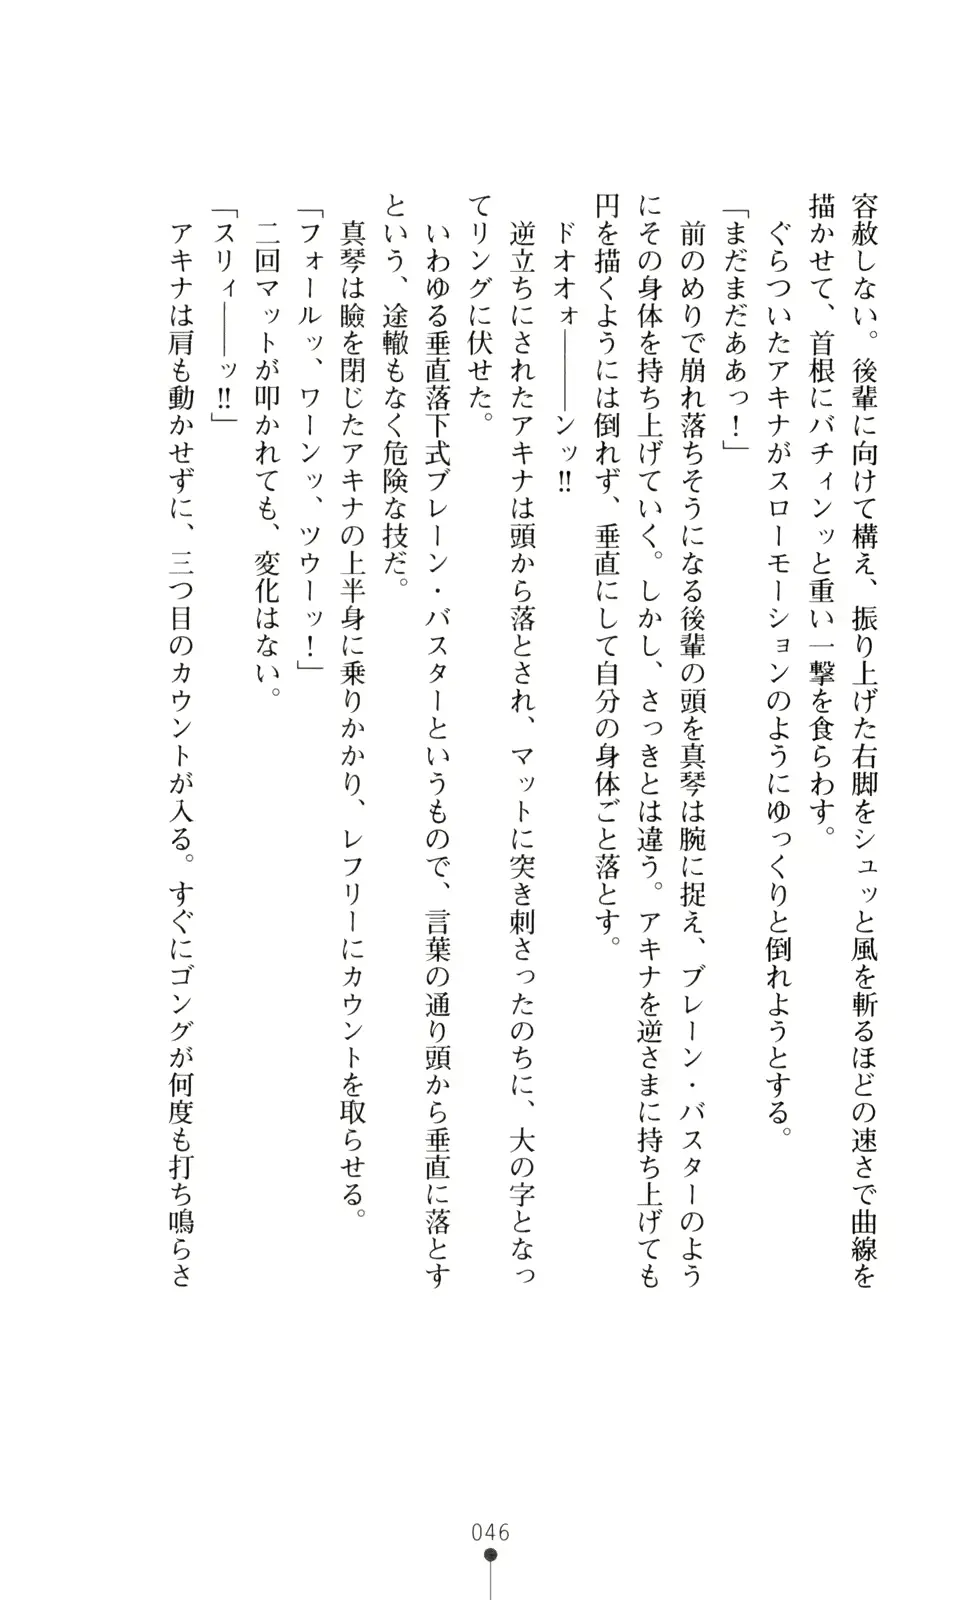 容赦しない。後輩に向けて構え、振り上げた右脚をシュッと風を斬るほどの速さで曲線を
描かせて、首根にバチィンッと重い一撃を食らわす。
ぐらついたアキナがスローモーションのようにゆっくりと倒れようとする。
「まだまだああっ！」
前のめりで崩れ落ちそうになる後輩の頭を真琴は腕に捉え、ブレーン・バスターのよう
にその身体を持ち上げていく。しかし、さっきとは違う。アキナを逆さまに持ち上げても
円を描くようには倒れず、垂直にして自分の身体ごと落とす。
ドオオォ――ンッ!!
逆立ちにされたアキナは頭から落とされ、マットに突き刺さったのちに、大の字となっ
てリングに伏せた。
いわゆる垂直落下式ブレーン・バスターというもので、言葉の通り頭から垂直に落とす
という、途轍もなく危険な技だ。
真琴は瞼を閉じたアキナの上半身に乗りかかり、レフリーにカウントを取らせる。
「フォールッ、ワーンッ、ツウーッ！」
二回マットが叩かれても、変化はない。
「スリィ――ッ!!」
アキナは肩も動かせずに、三つ目のカウントが入る。すぐにゴングが何度も打ち鳴らさ
046